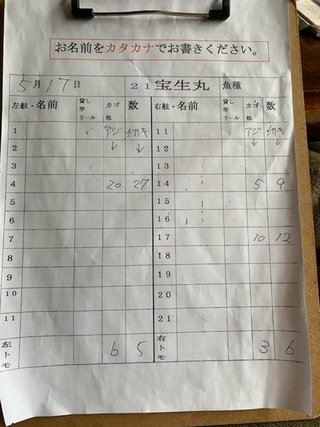 お名前をカタカナでお書きください。
5月17日 21宝生丸 魚種
左舷・名前 貸し竿リール カゴ他 数 右舷・名前 貸し竿リール カゴ他 数
1 アジ イサキ 11 アジ イサキ
2 ↓ ↓ 12 ↓ ↓
3 13
4 20 27 14 5 9
5 15
6 16
7 17 10 12
8 18
9 19
10 20
11 21
左トモ 6 5 右トモ 3 6